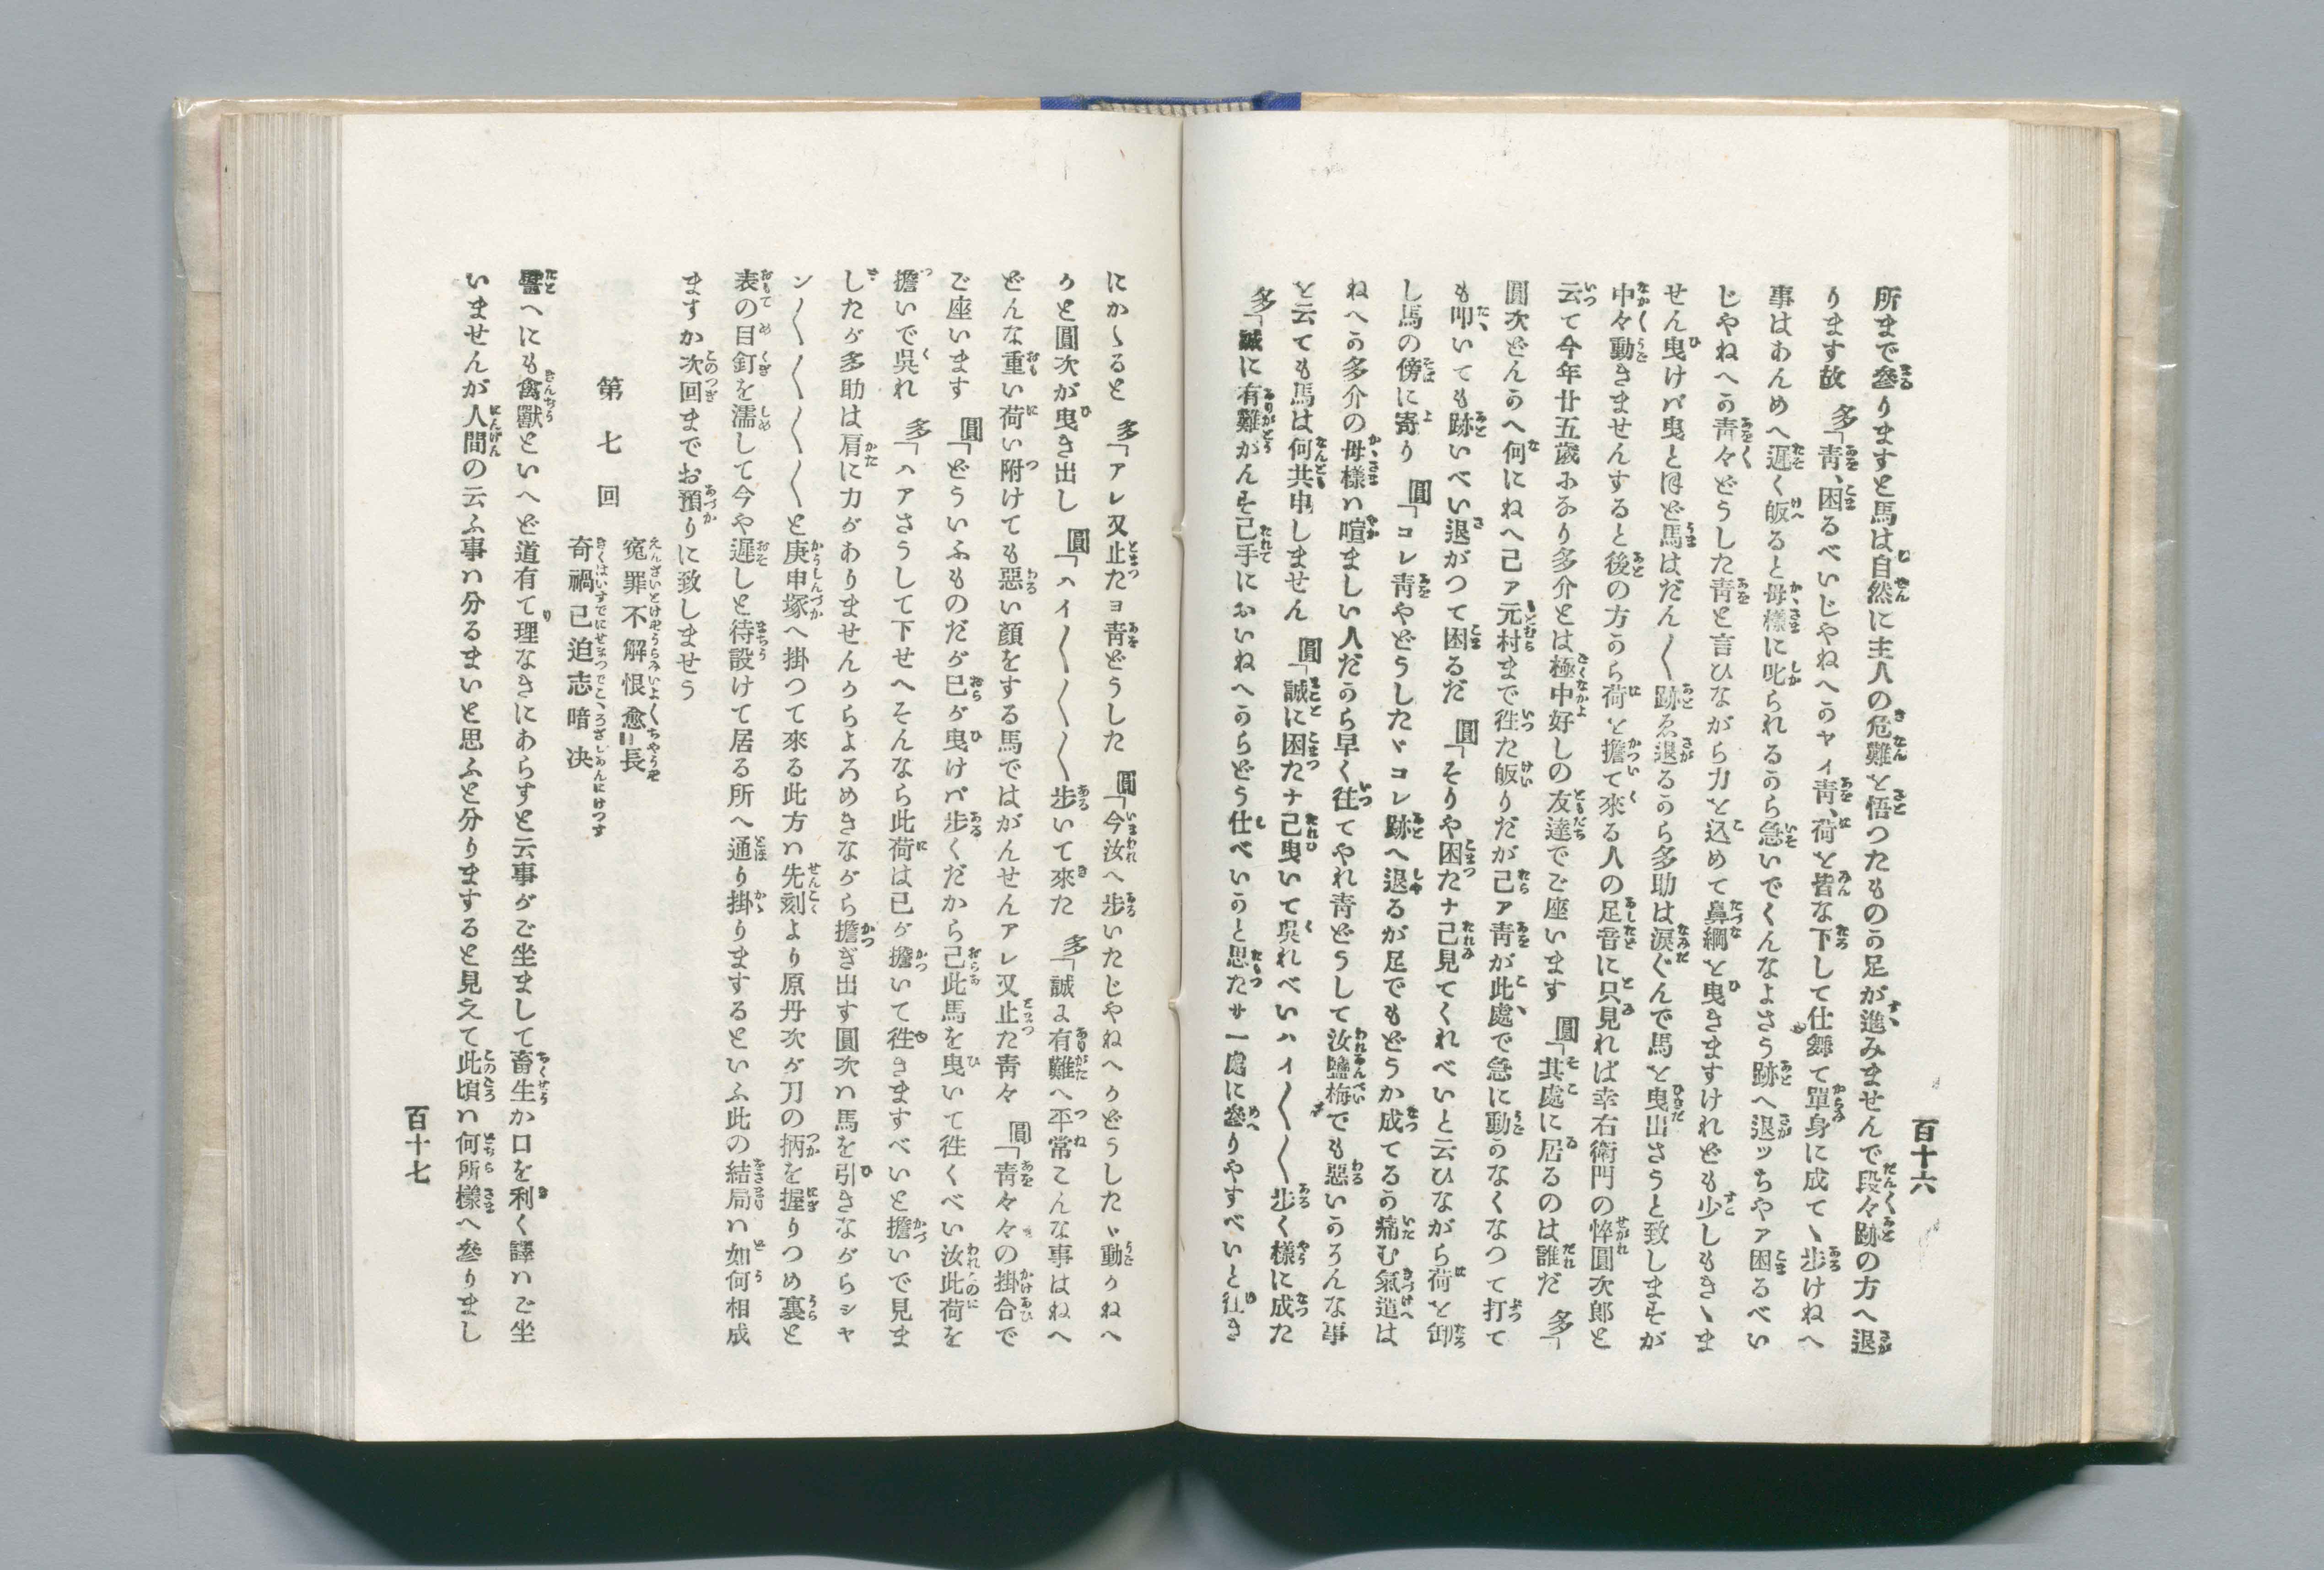 百十六
所まで參りますと馬は自然に主人の危難を悟つたものか足が進みませんで段々跡の方へ退
ります故 多「靑、困るべいじやねへかヤイ靑、荷を皆な下して仕舞て單身に成て、歩けねへ
事はあんめへ遲く皈ると母樣に叱られるから急いでくんなよさう跡へ退ッちやア困るべい
じやねへか靑々どうした靑と言ひながら力を込めて鼻綱を曳きますけれども少しもきゝま
せん曳けバ曳とほど馬はだん〱跡ゑ退るから多助は淚ぐんで馬を曳出さうと致しますが
中々動きませんすると後の方から荷を擔て來る人の足音に只見れば幸右衛門の悴圓次郎と
云て今年廿五歲おなり多介とは極中好しの友達でご座います 圓「其處に居るのは誰だ 多「
圓次どんかへ何にねへ己ア元村まで徃た皈りだが己ア靑が此處で急に動かなくなつて打て
も叩いても跡いべい退がつて困るだ 圓「そりや困たナ己見てくれべいと云ひながら荷を卸
し馬の傍に寄り 圓「コレ靑やどうしたヾコレ跡へ退るが足でもどうか成てるか痛む氣遣は
ねへか多介の母樣ハ喧ましい人だから早く徃てやれ靑どうして汝鹽梅でも惡いかろんな事
を云ても馬は何共申しません 圓「誠に困たナ己曳いて吳れべいハイ〱〱〱歩く樣に成た
多「誠に有難がんす己手においねへからどう仕べいかと思たサ一處に參りやすべいと徃き
にかゝると 多「アレ又止たヨ靑どうした 圓「今汝へ歩いたじやねへかどうしたヾ動かねへ
かと圓次が曳き出し 圓「ハイ〱〱〱〱歩いて來た 多「誠よ有難へ平常こんな事はねへ
どんな重い荷い附けても惡い顏をする馬ではがんせんアレ又止た靑々 圓「靑々々の掛合で
ご座います 圓「どういふものだガ己ガ曳けバ歩くだから己此馬を曳いて徃くべい汝此荷を
擔いで吳れ 多「ハアさうして下せへそんなら此荷は己ガ擔いて徃きますべいと擔いで見ま
したガ多助は肩に力ガありませんからよろめきなガら擔ぎ出す圓次ハ馬を引きなガらシヤ
ン〱〱〱〱〱と庚申塚へ掛つて來る此方ハ先刻より原丹次ガ刀の柄を握りつめ裏と
表の目釘を濡して今や遲しと待設けて居る所へ通り掛りまするといふ此の結局ハ如何相成
ますか次回までお預りに致しませう
第七回
寃罪不解恨愈長
奇禍已迫志暗决
譬へにも禽獸といへど道有て理なきにあらすと云事ガご坐まして畜生か口を利く譯ハご坐
いませんが人間の云ふ事ハ分るまいと思ふと分りますると見えて此頃ハ何所樣へ參りまし
百十七